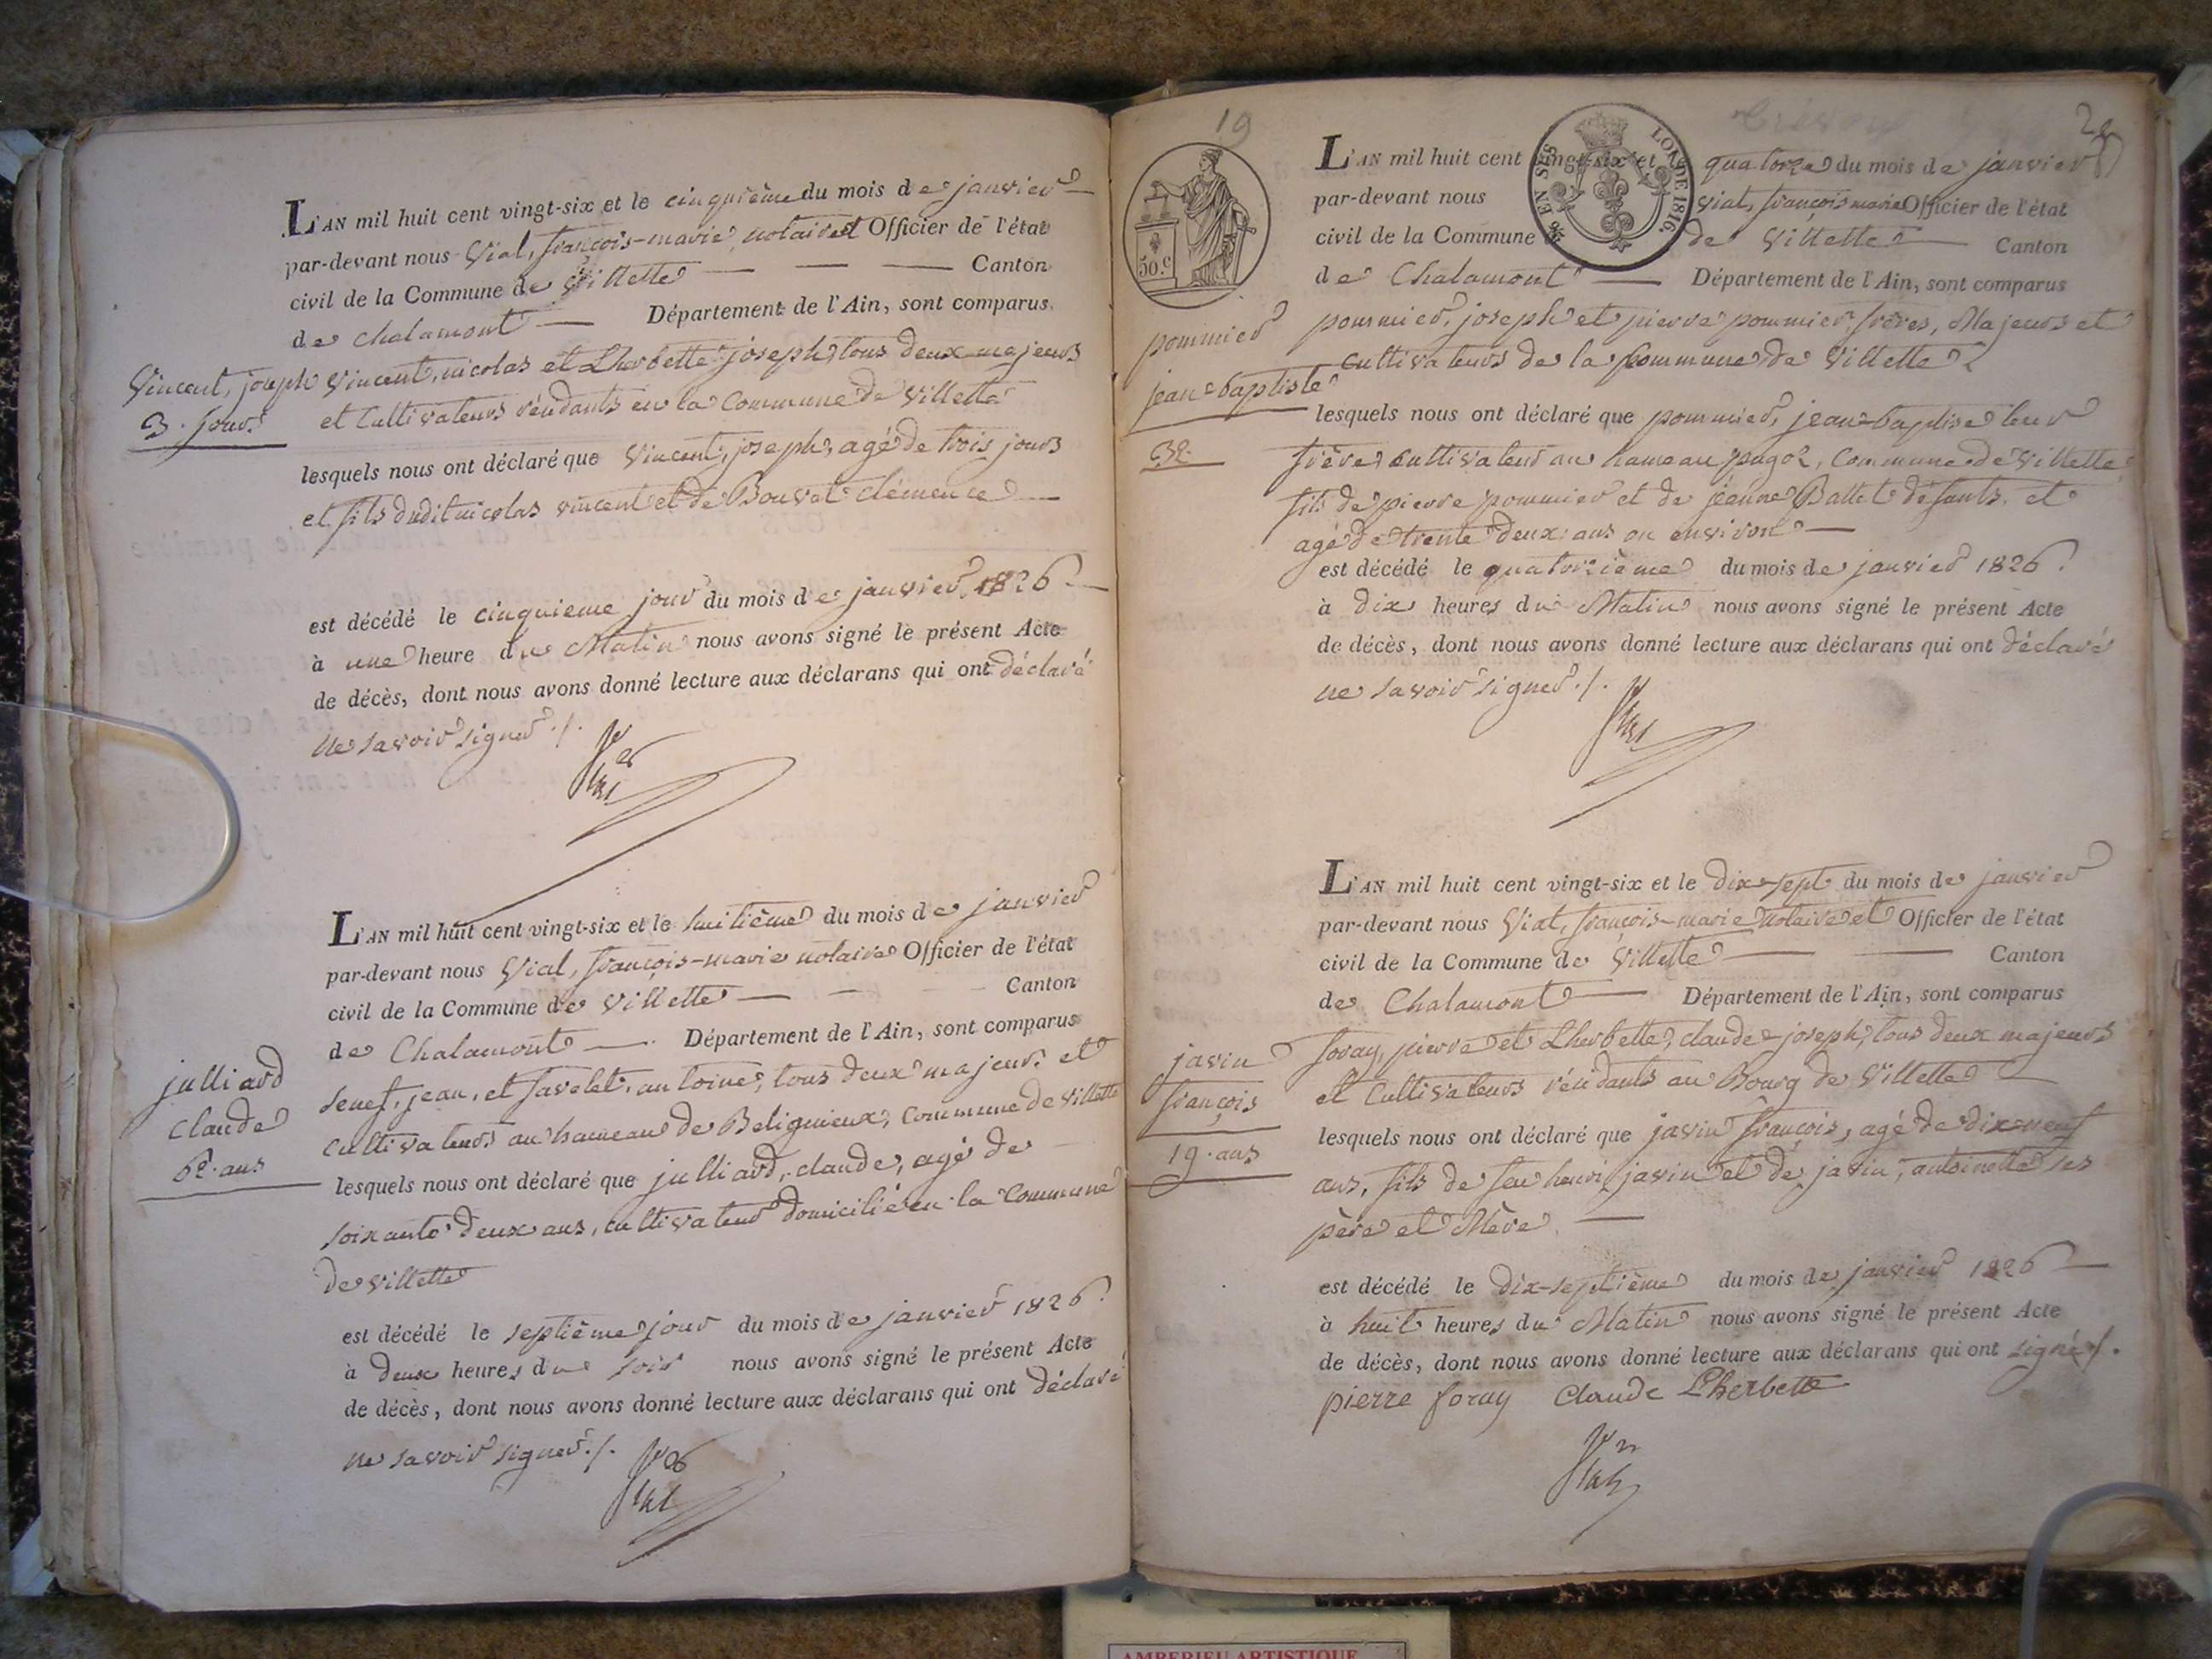 L'AN mil huit cent vingt-six et le cinquième du mois de janvier
par-devant nous Vial, françois-marie notaire et Officier de l'état
civil de la Commune de Villette Canton
de chalamont Département de l'Ain, sont comparus
Vincent, joseph
3. jours
Vincent, nicolas et Lherbette joseph, tous deux majeurs
et Cultivateurs résidants en la Commune de Villette
lesquels nous ont déclaré que Vincent, joseph, agé de trois jours
et fils dudit nicolas vincent et de Bouvat clémence
est décédé le cinquieme jour du mois de janvier 1826
à une heure du Matin nous avons signé le présent Acte
de décès, dont nous avons donné lecture aux déclarans qui ont déclaré
ne savoir signer ./.
L'AN mil huit cent vingt-six et le huitième du mois de janvier
par-devant nous Vial, françois-marie notaire Officier de l'état
civil de la Commune de Villette Canton
de Chalamont Département de l'Ain, sont comparus
julliard
claude
62. ans
jean, et antoine, tous deux majeurs et
cultivateurs au hameau de Beligneux, Commune de Villette
lesquels nous ont déclaré que julliard, claude, agé de
soixante deux ans, cultivateur domicilié en la Commune
de Villette
est décédé le septième jour du mois de janvier 1826
à deux heures du soir nous avons signé le présent Acte
de décès, dont nous avons donné lecture aux déclarans qui ont déclaré
ne savoir signer ./.
19
50.c
EN SUS
LOI DE 1816.
L'AN mil huit cent vingt-six et le quatorze du mois de janvier
par-devant nous Vial, françois marie Officier de l'état
civil de la Commune de Villette Canton
de Chalamont Département de l'Ain, sont comparus
pommier
jean-baptiste
32.
pommier, joseph et pierre pommier, frères, Majeurs et
Cultivateurs de la Commune de Villette
lesquels nous ont déclaré que pommier, jean-baptise leur
frère, cultivateur au hameau commune de Villette
fils de pierre pommier et de jeanne Ballet défunts, et
agé de trente deux ans ou environ
est décédé le quatorzième du mois de janvier 1826.
à dix heures du Matin nous avons signé le présent Acte
de décès, dont nous avons donné lecture aux déclarans qui ont déclaré
ne savoir signer ./.
L'AN mil huit cent vingt-six et le dix-sept du mois de janvier
par-devant nous Vial, françois-marie notaire et Officier de l'état
civil de la Commune de Villette Canton
de Chalamont Département de l'Ain, sont comparus
javin
françois
19. ans
foray, pierre et Lherbette, claude-joseph, tous deux majeurs
et Cultivateurs résidants au Bourg de Villette
lesquels nous ont déclaré que javin françois, agé de dix-neuf
ans, fils de feu henri javin et de javin, antoinette ses
père et Mère
est décédé le dix-septième du mois de janvier 1826
à huit heures du Matin nous avons signé le présent Acte
de décès, dont nous avons donné lecture aux déclarans qui ont signé ./.
pierre foray Claude Lherbette
AMBERIEU ARTISTIQUE